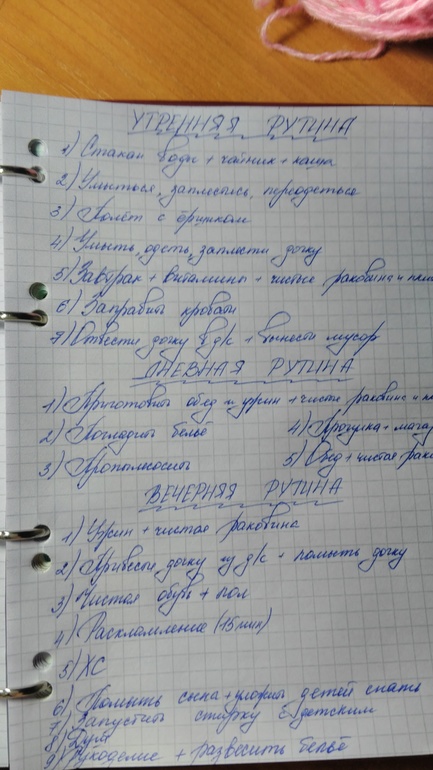 УТРЕННЯЯ РУТИНА
1) Стакан воды + чайник + каша
2) Умыться, заплестись, переодеться
3) Полёт с бризиком
4) Умыть, одеть, заплести дочку
5) Завтрак + витамины + чистые раковина и
6) Заправить кровати
7) Отвести дочку в д/с + вынести мусор
ДНЕВНАЯ РУТИНА
1) Приготовить обед и ужин + чисти раковина и
2) Погладить бельё 4) Прогулка +
3) Пропылесосить 5) Обед + чистая
ВЕЧЕРНЯЯ РУТИНА
1) Ужин + чистая раковина
2) Привести дочку из д/с + помыть дочку
3) Чистая обувь + пол
4) Расхламление (15 мин)
5) ХС
6) Помыть сына + уложить детей спать
7) Запустить стирку с детским
8) Душ
9) Рукоделие + развесить бельё